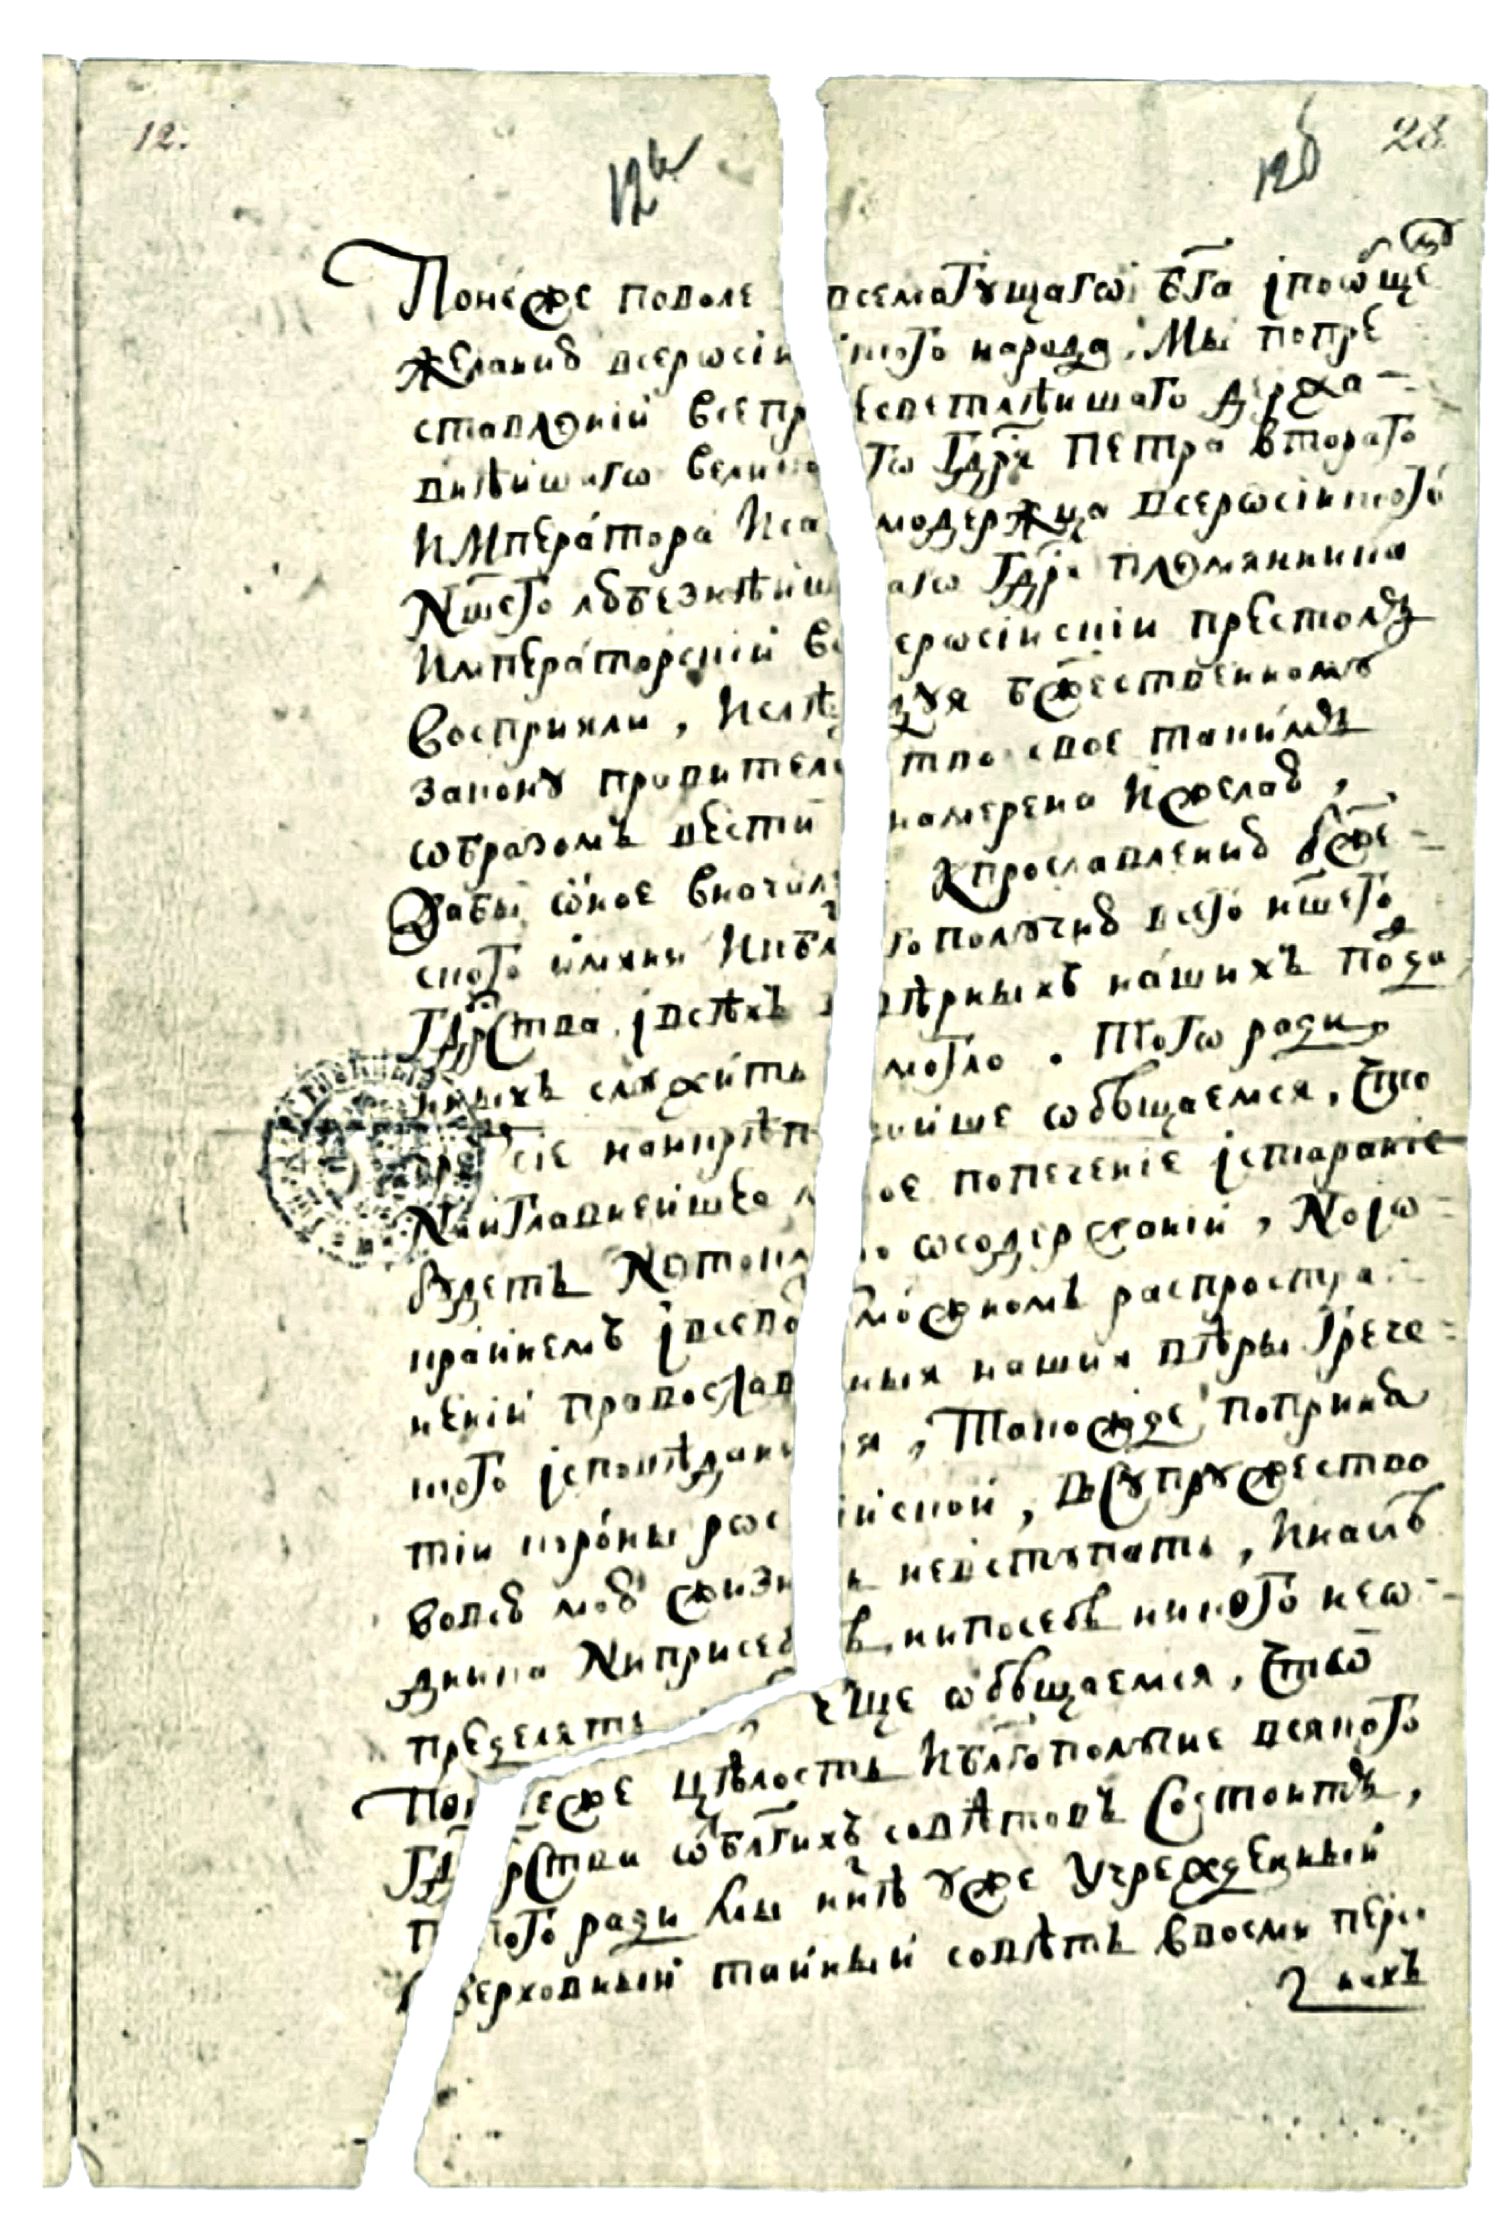 12.
12а
12б
28
Понеже поволе всемогущагѡ бг҃а і поѡбще
желанию всерѡсійского народа, Мы попре
ставлении Всепресветлѣйшаго держа-
внѣйшагѡ великогѡ гдр҃я Петра втораго
Императора И самодержца всерѡсійского
Нш҃его любезнѣйшагѡ гдр҃я племянника
Императорский Всерѡсійский престолъ
Восприяли, И слѣдуя бжественному
закону правительство свое такимъ
ѡбразомъ вести намерена И желаю,
Дабы ѡное вначале к прославлению бже-
ского имяни И к бл҃гополучию всего нш҃его
гдр҃ства, і всѣхъ вѣрныхъ нашихъ подда
нныхъ служить могло. Того ради,
сие наикрѣпчайше ѡбѣщаемся, что
Наиглавнейшее мое попечение і старание
будетъ Не токмо ѡ содержании, Но і ѡ
крайнемъ і всевозможномъ распростра-
нении православныя нашия вѣры Грече-
ского ісповѣдания, Такожде по приня
тии короны рѡсийской, в супружество
во всю мою жизнь не вступать, И наслѣ
дника Ни при себѣ, ни по себѣ никого не ѡ-
пределять, еще ѡбѣщаемся, что
Понеже цѣлость И бл҃гополучие всякого
гдр҃ства ѿ бл҃гихъ совѣтовъ Состоитъ,
Того ради Мы нн҃ѣ уже Учрежденный
верховный тайный совѣтъ в восми персо
нахъ